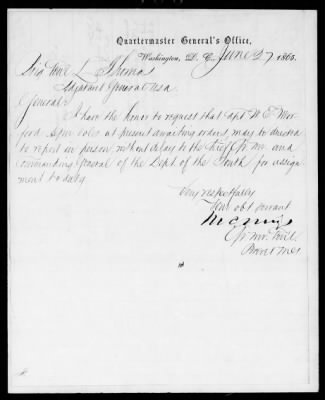 Quartermaster General's Office,
Washington, D. C., June 27 1865.
Brig Genl L. Thomas
Adjutant General USA
General:
I have the honor to request that Capt W. E. Mor-
ford Agm Vols at present awaiting orders, may be directed
to report in person without delay to the Chief Qr Mr and
commanding General of the Dept of the South for assign-
ment to duty.
Very respectfully
Your obt servant
M C Meigs
Qr Mr Genl
Brevet M G